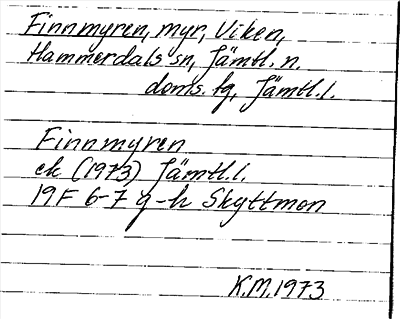 Finnmyren, myr, Viken,
Hammerdals sn, Jämtl. n.
doms. fg, Jämtl. l.
Finnmyren
ek (1973) Jämtl. l.
19F 6-7 g-h Skyttmon
K.M. 1973